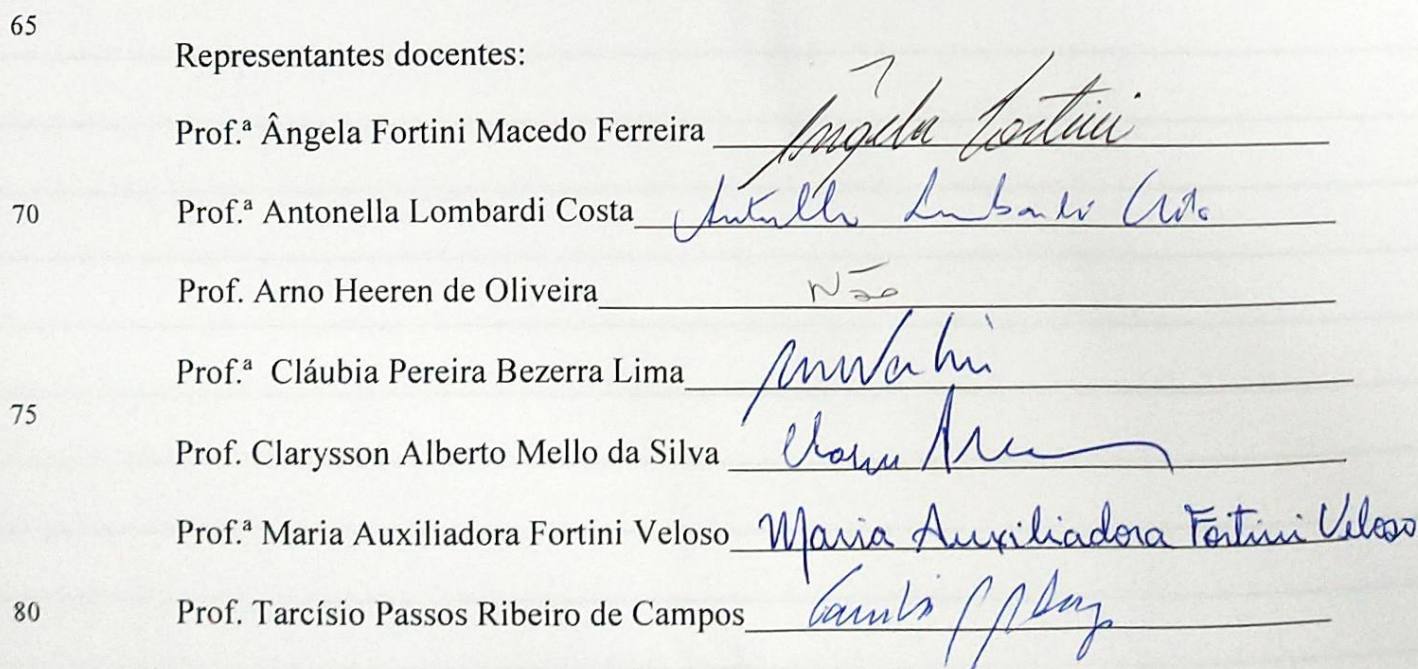 65
Representantes docentes:
Prof.ª Ângela Fortini Macedo Ferreira Ângela Fortini
70 Prof.ª Antonella Lombardi Costa Antonella Lombardi Costa
Prof. Arno Heeren de Oliveira Não
Prof.ª Cláubia Pereira Bezerra Lima
75
Prof. Clarysson Alberto Mello da Silva
Prof.ª Maria Auxiliadora Fortini Veloso Maria Auxiliadora Fortini Veloso
80 Prof. Tarcísio Passos Ribeiro de Campos